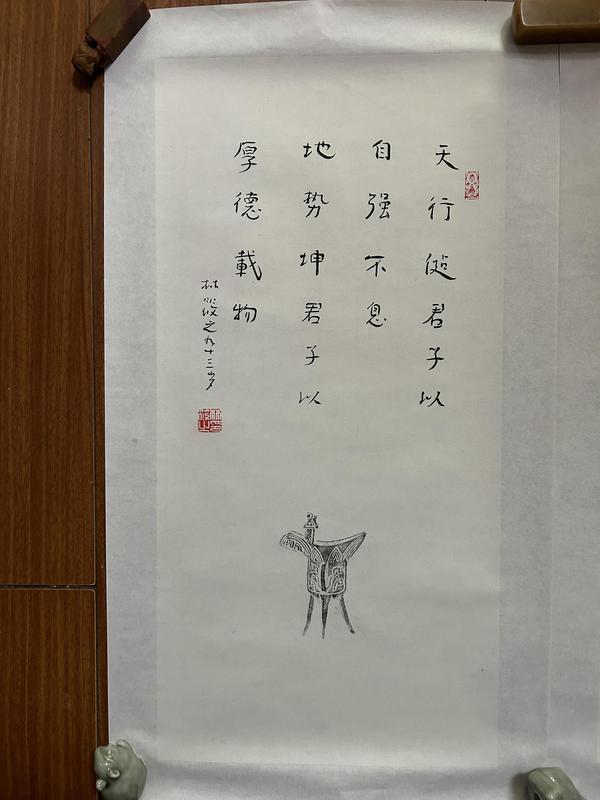 天行健君子以
自强不息
地势坤君子以
厚德載物
林筱之九十三岁